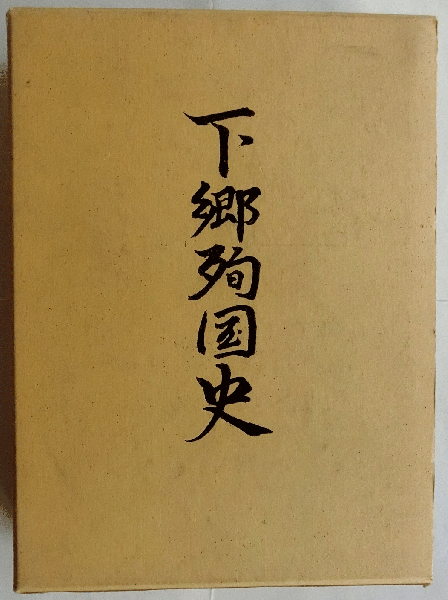 下郷殉国史